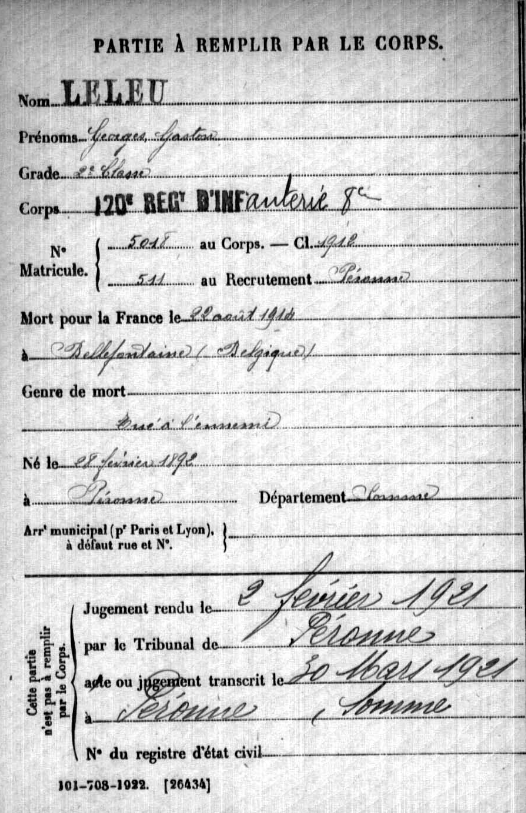 PARTIE À REMPLIR PAR LE CORPS.
Nom LELEU
Prénoms Georges Gaston
Grade 2e Classe
Corps 120e REGt D'INFanterie 8e Cie
N° Matricule. 5018 au Corps. — Cl. 1912
511 au Recrutement Péronne
Mort pour la France le 22 août 1914
à Bellefontaine (Belgique)
Genre de mort
tué à l'ennemi
Né le 28 février 1892
à Péronne Département Somme
Arrt municipal (pr Paris et Lyon),
à défaut rue et N°.
Cette partie
n'est pas à remplir
par le Corps.
Jugement rendu le 2 février 1921
par le Tribunal de Péronne
acte ou jugement transcrit le 30 Mars 1921
à Péronne (Somme
N° du registre d'état civil
101-708-1922. [26434]